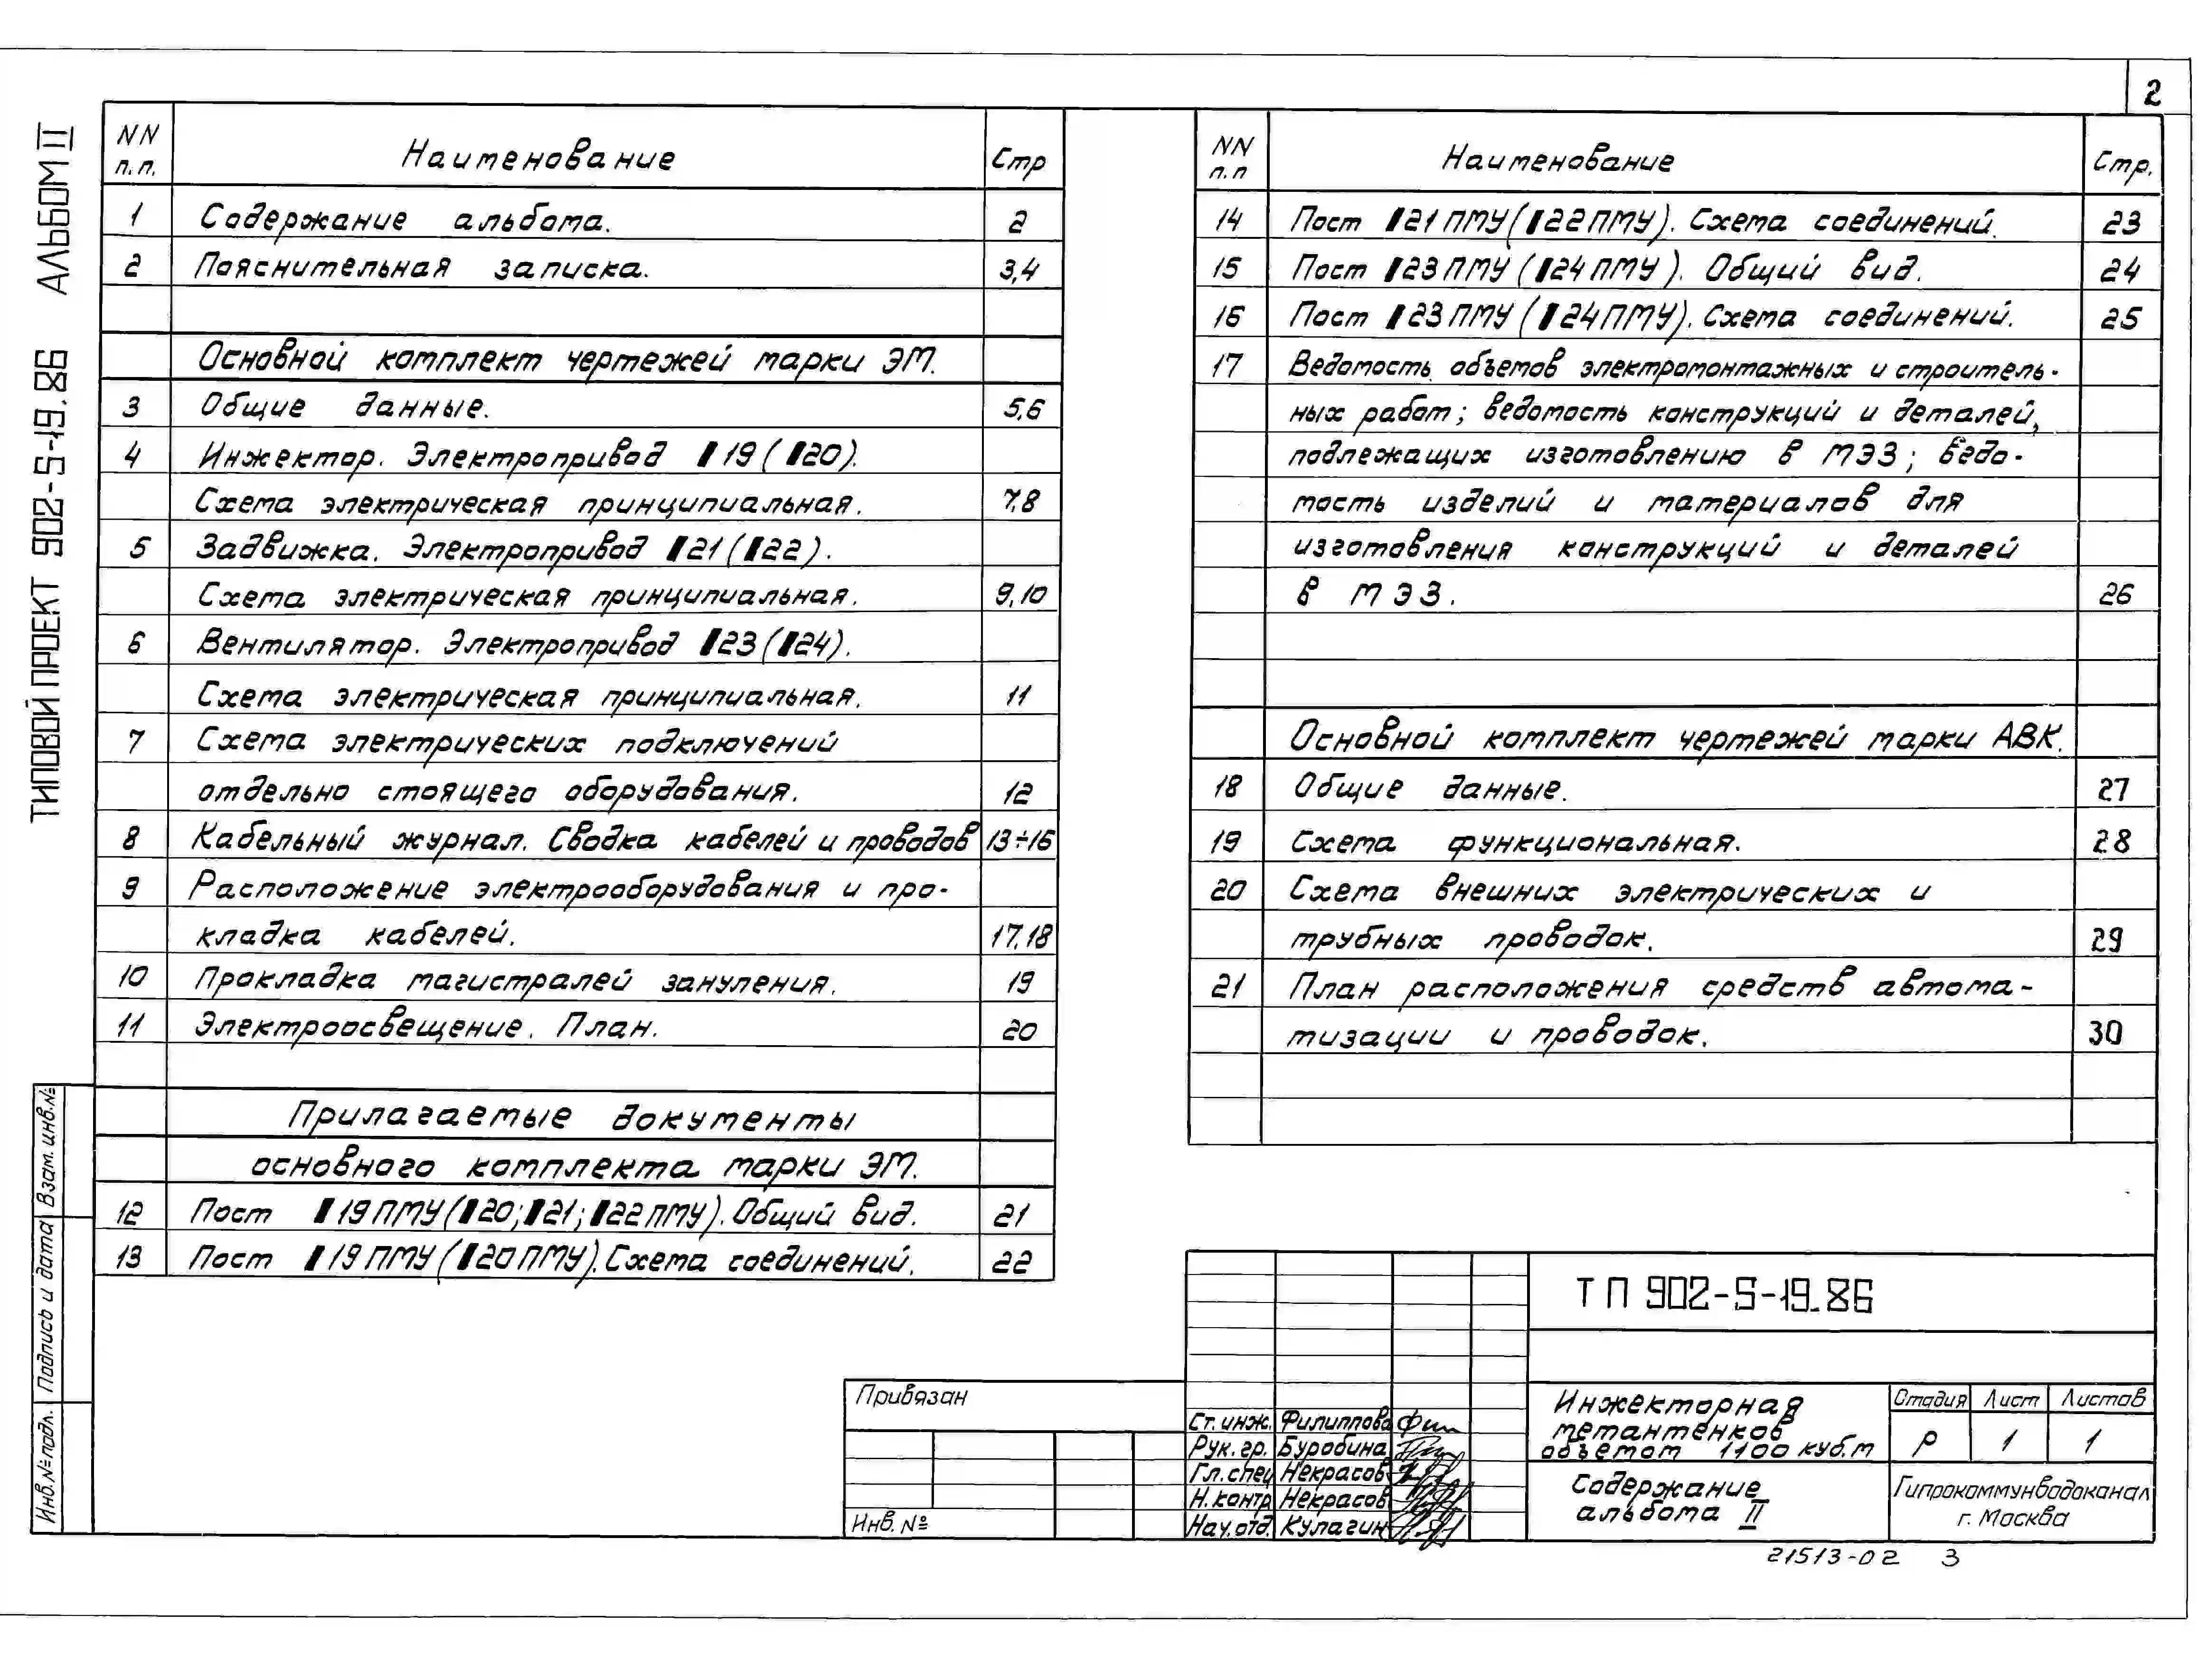 2
ТИПОВОЙ ПРОЕКТ 902-5-19.86 АЛЬБОМ II
NN п.п. Наименование Стр
1 Содержание альбома. 2
2 Пояснительная записка. 3,4
Основной комплект чертежей марки ЭМ.
3 Общие данные. 5,6
4 Инжектор. Электропривод 19 (20).
Схема электрическая принципиальная. 7,8
5 Задвижка. Электропривод 21 (22).
Схема электрическая принципиальная. 9,10
6 Вентилятор. Электропривод 23 (24).
Схема электрическая принципиальная. 11
7 Схема электрических подключений
отдельно стоящего оборудования. 12
8 Кабельный журнал. Сводка кабелей и проводов 13÷16
9 Расположение электрооборудования и про-
кладка кабелей. 17,18
10 Прокладка магистралей зануления. 19
11 Электроосвещение. План. 20
Прилагаемые документы
основного комплекта марки ЭМ.
12 Пост 19ПМУ (20; 21; 22ПМУ). Общий вид. 21
13 Пост 19ПМУ (20ПМУ). Схема соединений. 22
NN п.п Наименование Стр.
14 Пост 21ПМУ (22ПМУ). Схема соединений. 23
15 Пост 23ПМУ (24ПМУ). Общий вид. 24
16 Пост 23ПМУ (24ПМУ). Схема соединений. 25
17 Ведомость объемов электромонтажных и строитель-
ных работ; ведомость конструкций и деталей,
подлежащих изготовлению в МЭЗ; ведо-
мость изделий и материалов для
изготовления конструкций и деталей
в МЭЗ. 26
Основной комплект чертежей марки АВК.
18 Общие данные. 27
19 Схема функциональная. 28
20 Схема внешних электрических и
трубных проводок. 29
21 План расположения средств автома-
тизации и проводок. 30
Взам. инв.№
Подпись и дата
Инв.№ подл.
Привязан
Инв. №
Ст. инж. Филиппова
Рук. гр. Буробина
Гл. спец Некрасов
Н. контр Некрасов
Нач. отд. Кулагин
ТП 902-5-19.86
Инжекторная
метантенков
объемом 1100 куб.м
Стадия Лист Листов
Р 1 1
Содержание
альбома II
Гипрокоммунводоканал
г. Москва
21513-02 3